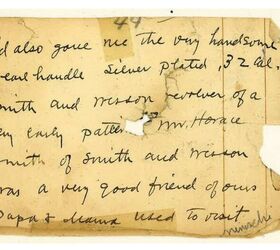 44
d also gave me the very handsome
earl handle silver plated, 32 Cal,
mith and Wesson revolver of a
ry early patte Mr. Horace
mith of Smith and Wesson
was a very good friend of ours
Papa & Mama used to visit